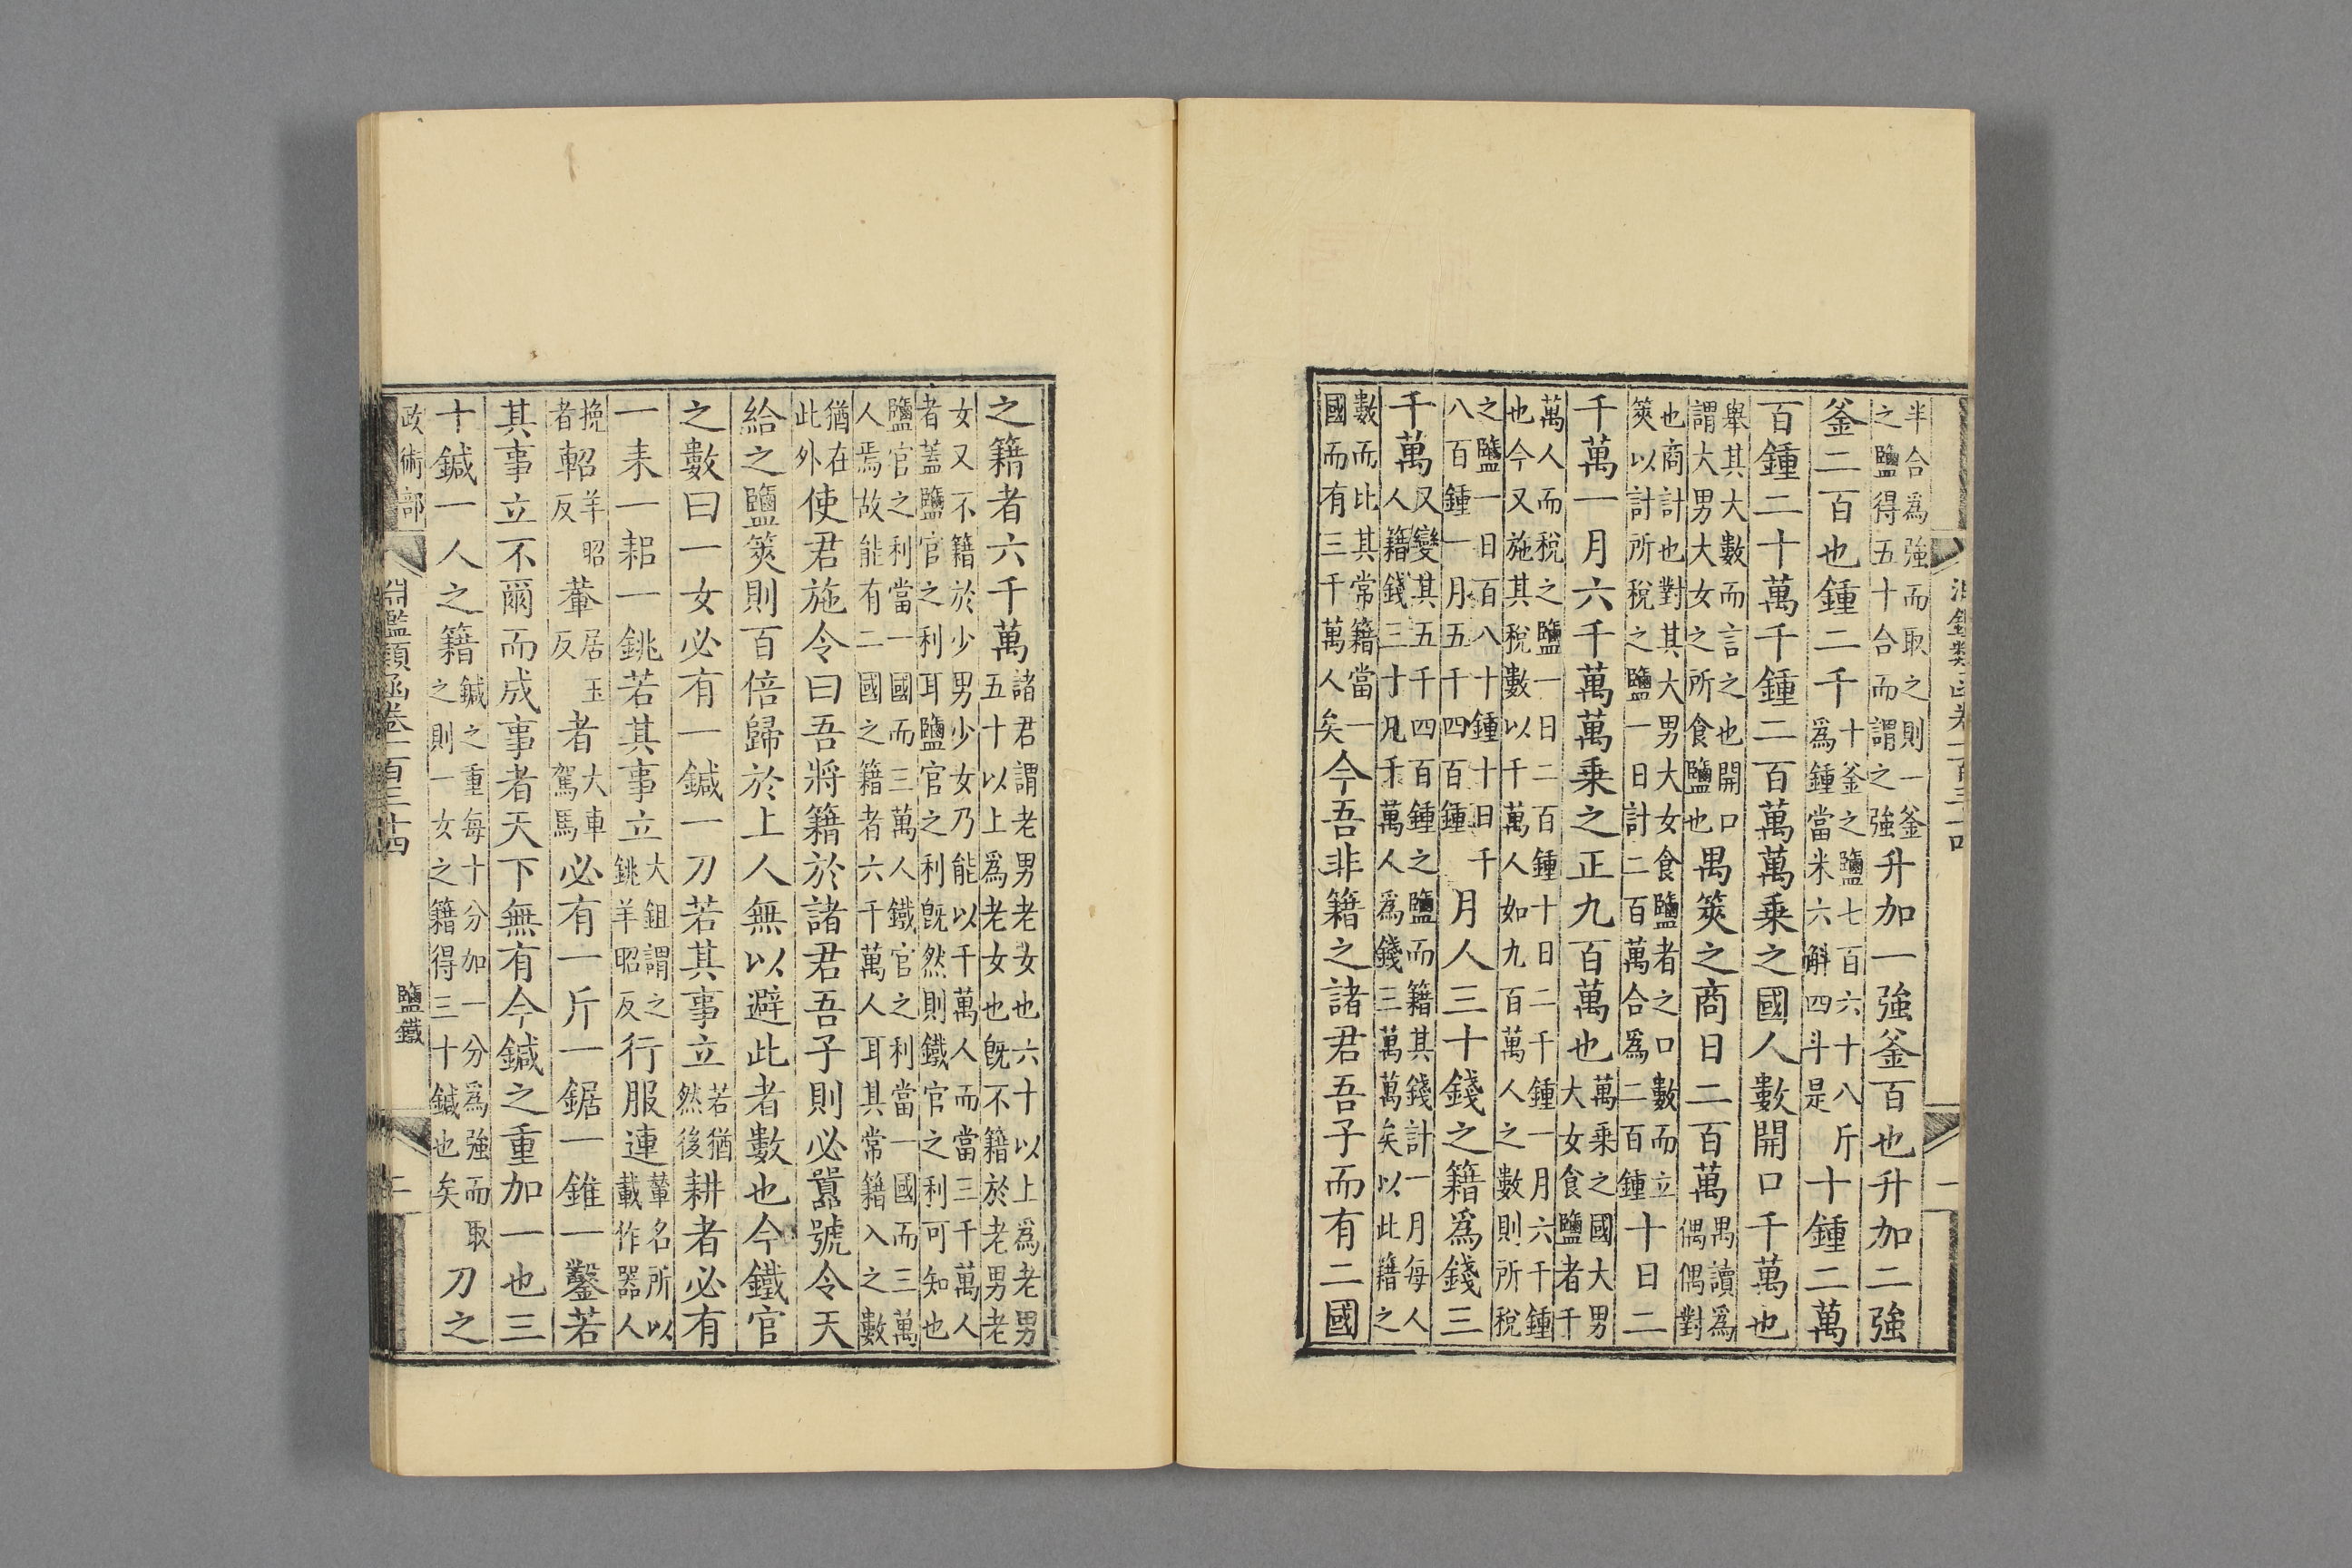 淵鑑類函卷一百三十四 一
半合爲強而取之則一釜之鹽得五十合而謂之強升加一強釜百也升加二強
釜二百也鍾二千十釜之鹽七百六十八斤爲鍾當米六斛四斗是十鍾二萬
百鍾二十萬千鍾二百萬萬乘之國人數開口千萬也
舉其大數而言之也開口謂大男大女之所食鹽也禺筴之商日二百萬禺讀爲偶偶對
也商計也對其大男大女食鹽者之口數而立筴以計所稅之鹽一日計二百萬合爲二百鍾十日二
千萬一月六千萬萬乘之正九百萬也萬乘之國大男大女食鹽者千
萬人而稅之鹽一日二百鍾十日二千鍾一月六千鍾也今又施其稅數以千萬人如九百萬人之數則所稅
之鹽一日百八十鍾十日千八百鍾一月五千四百鍾月人三十錢之籍爲錢三
千萬又變其五千四百鍾之鹽而籍其錢計一月每人人籍錢三十凡千萬人爲錢三萬萬矣以此籍之
數而比其常籍當一國而有三千萬人矣今吾非籍之諸君吾子而有二國
之籍者六千萬諸君謂老男老女也六十以上爲老男五十以上爲老女也旣不籍於老男老
女又不籍於少男少女乃能以千萬人而當三千萬人者蓋鹽官之利耳鹽官之利旣然則鐵官之利可知也
鹽官之利當一國而三萬人鐵官之利當一國而三萬人焉故能有二國之籍者六千萬人耳其常籍入之數
猶在此外使君施令曰吾將籍於諸君吾子則必囂號令天
給之鹽筴則百倍歸於上人無以避此者數也今鐵官
之數曰一女必有一鍼一刀若其事立若猶然後耕者必有
一耒一耜一銚若其事立大鉏謂之銚羊昭反行服連輦名所以載作器人
挽者軺羊昭反輂居玉反者大車駕馬必有一斤一鋸一錐一鑿若
其事立不爾而成事者天下無有今鍼之重加一也三
十鍼一人之籍鍼之重每十分加一分爲強而取之則一女之籍得三十鍼也矣刀之
政術部 淵鑑類函卷一百三十四 鹽鐵 二